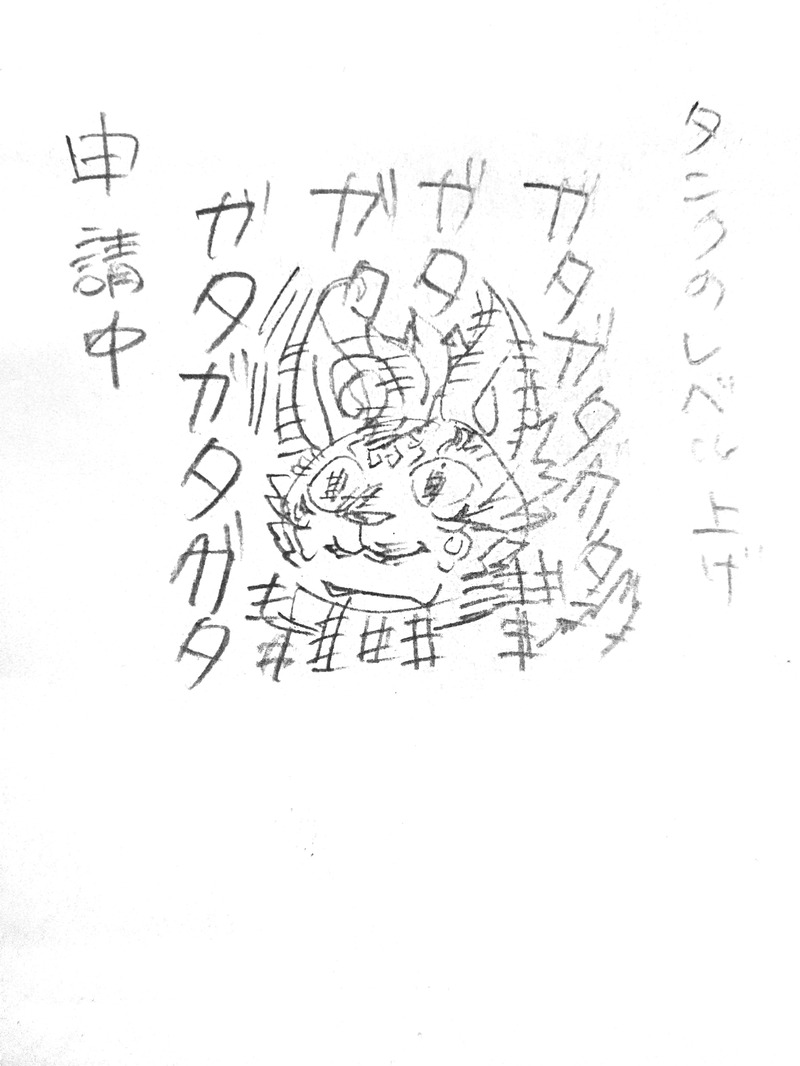 タンクのレベル上げ
ガタガタガタ
ガタ
ガタ
ガタガタガタ
申請中